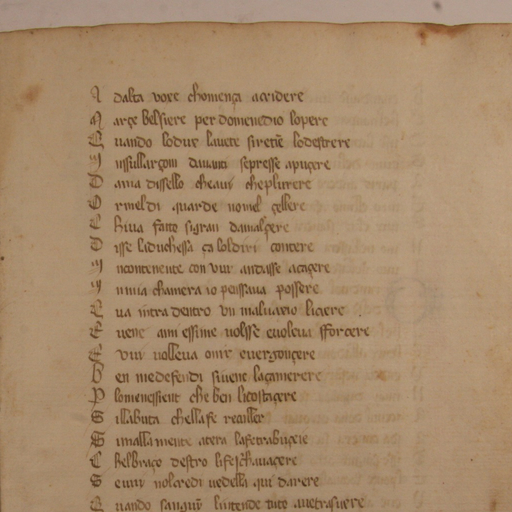 A dalta voxe chomença acridere
M arçe belsiere per domenedio lopere
Q uando lodux lauete si retie lodestrere
I nsullarçoni dauanti sepresse apuçere
D ama dissello cheaui cheplurere
O r meldi guarde nomel çellere
C hiua fatto sigran damalçere
D isse laduchessa ça loldiri contere
I ncontenente con vui andasse acaçere
I n mia chamera io pensaua possere
E ua intra dentro vn maluaxio liciere
E uene ami essime volsse euoleua sforcere
E vui volleua onir euergonçere
B en medefendi siuene laçamerere
P lomenessient che ben licostaçere
S illabuta chellafe
S imalla mente atera lafetrabuçeie
C helbraço destro life schauaçere
S euui nolcredi vedella qui darere
Q uando sangui lintende tuto auetrasuere